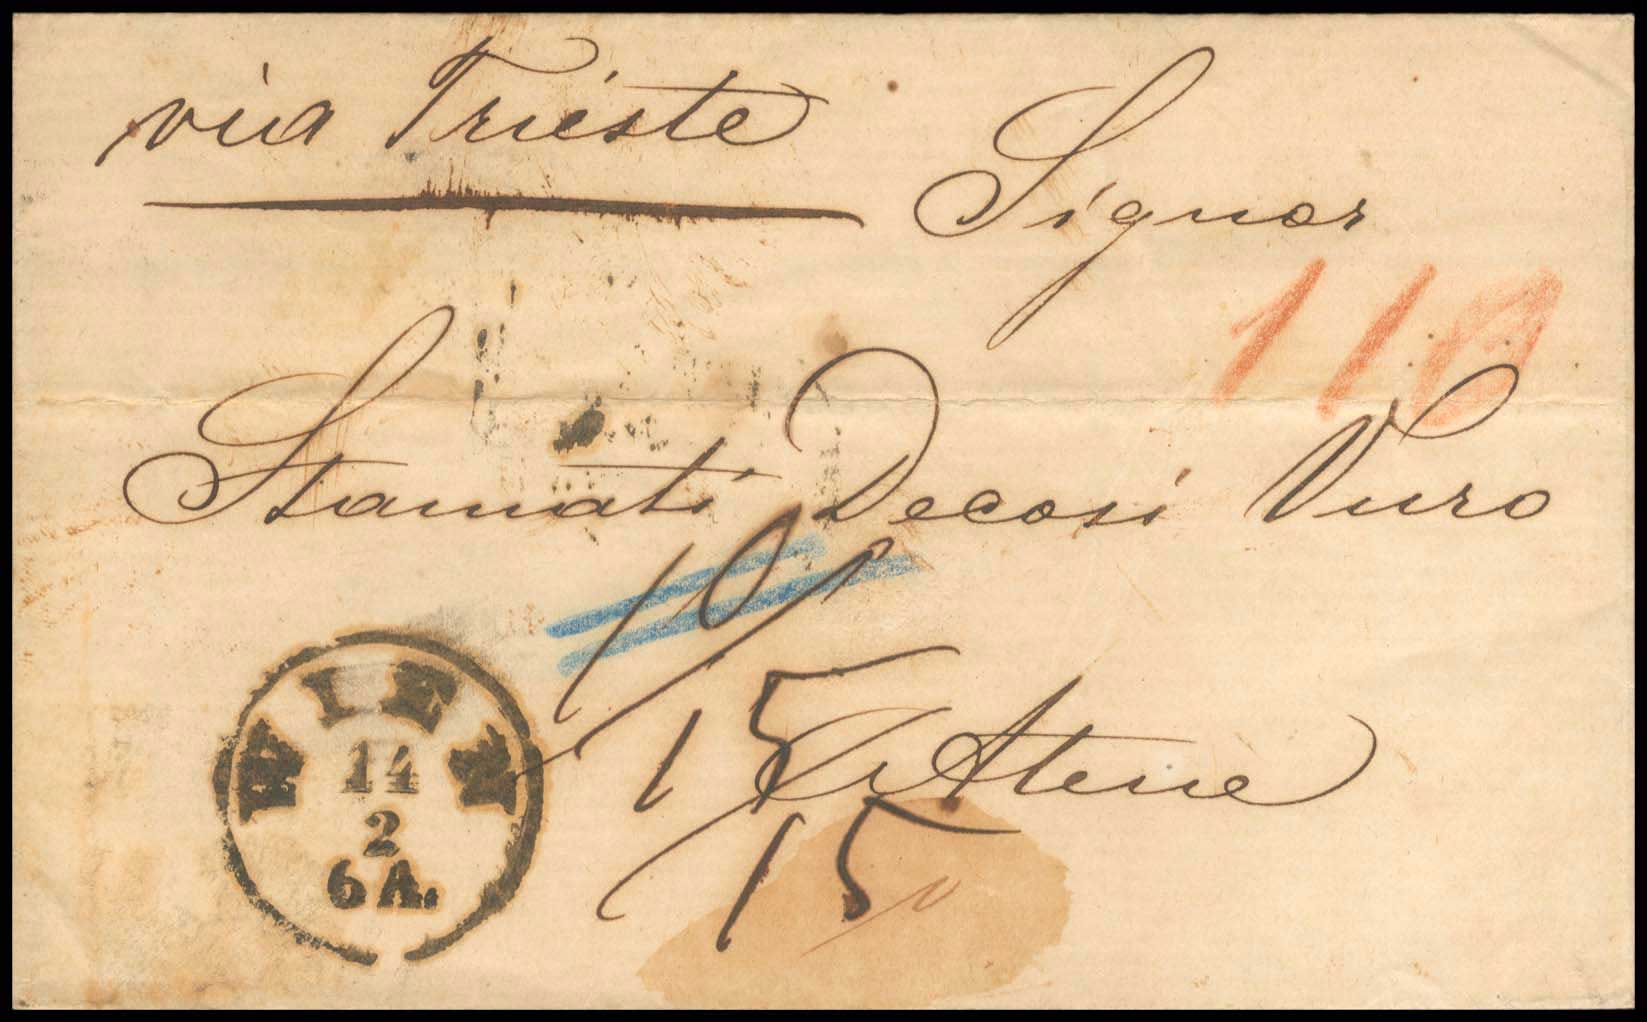 via Trieste
Signor
110
Stamati Decosi Vuro
10
15
Atene
15
WIEN
14
2
6 A.